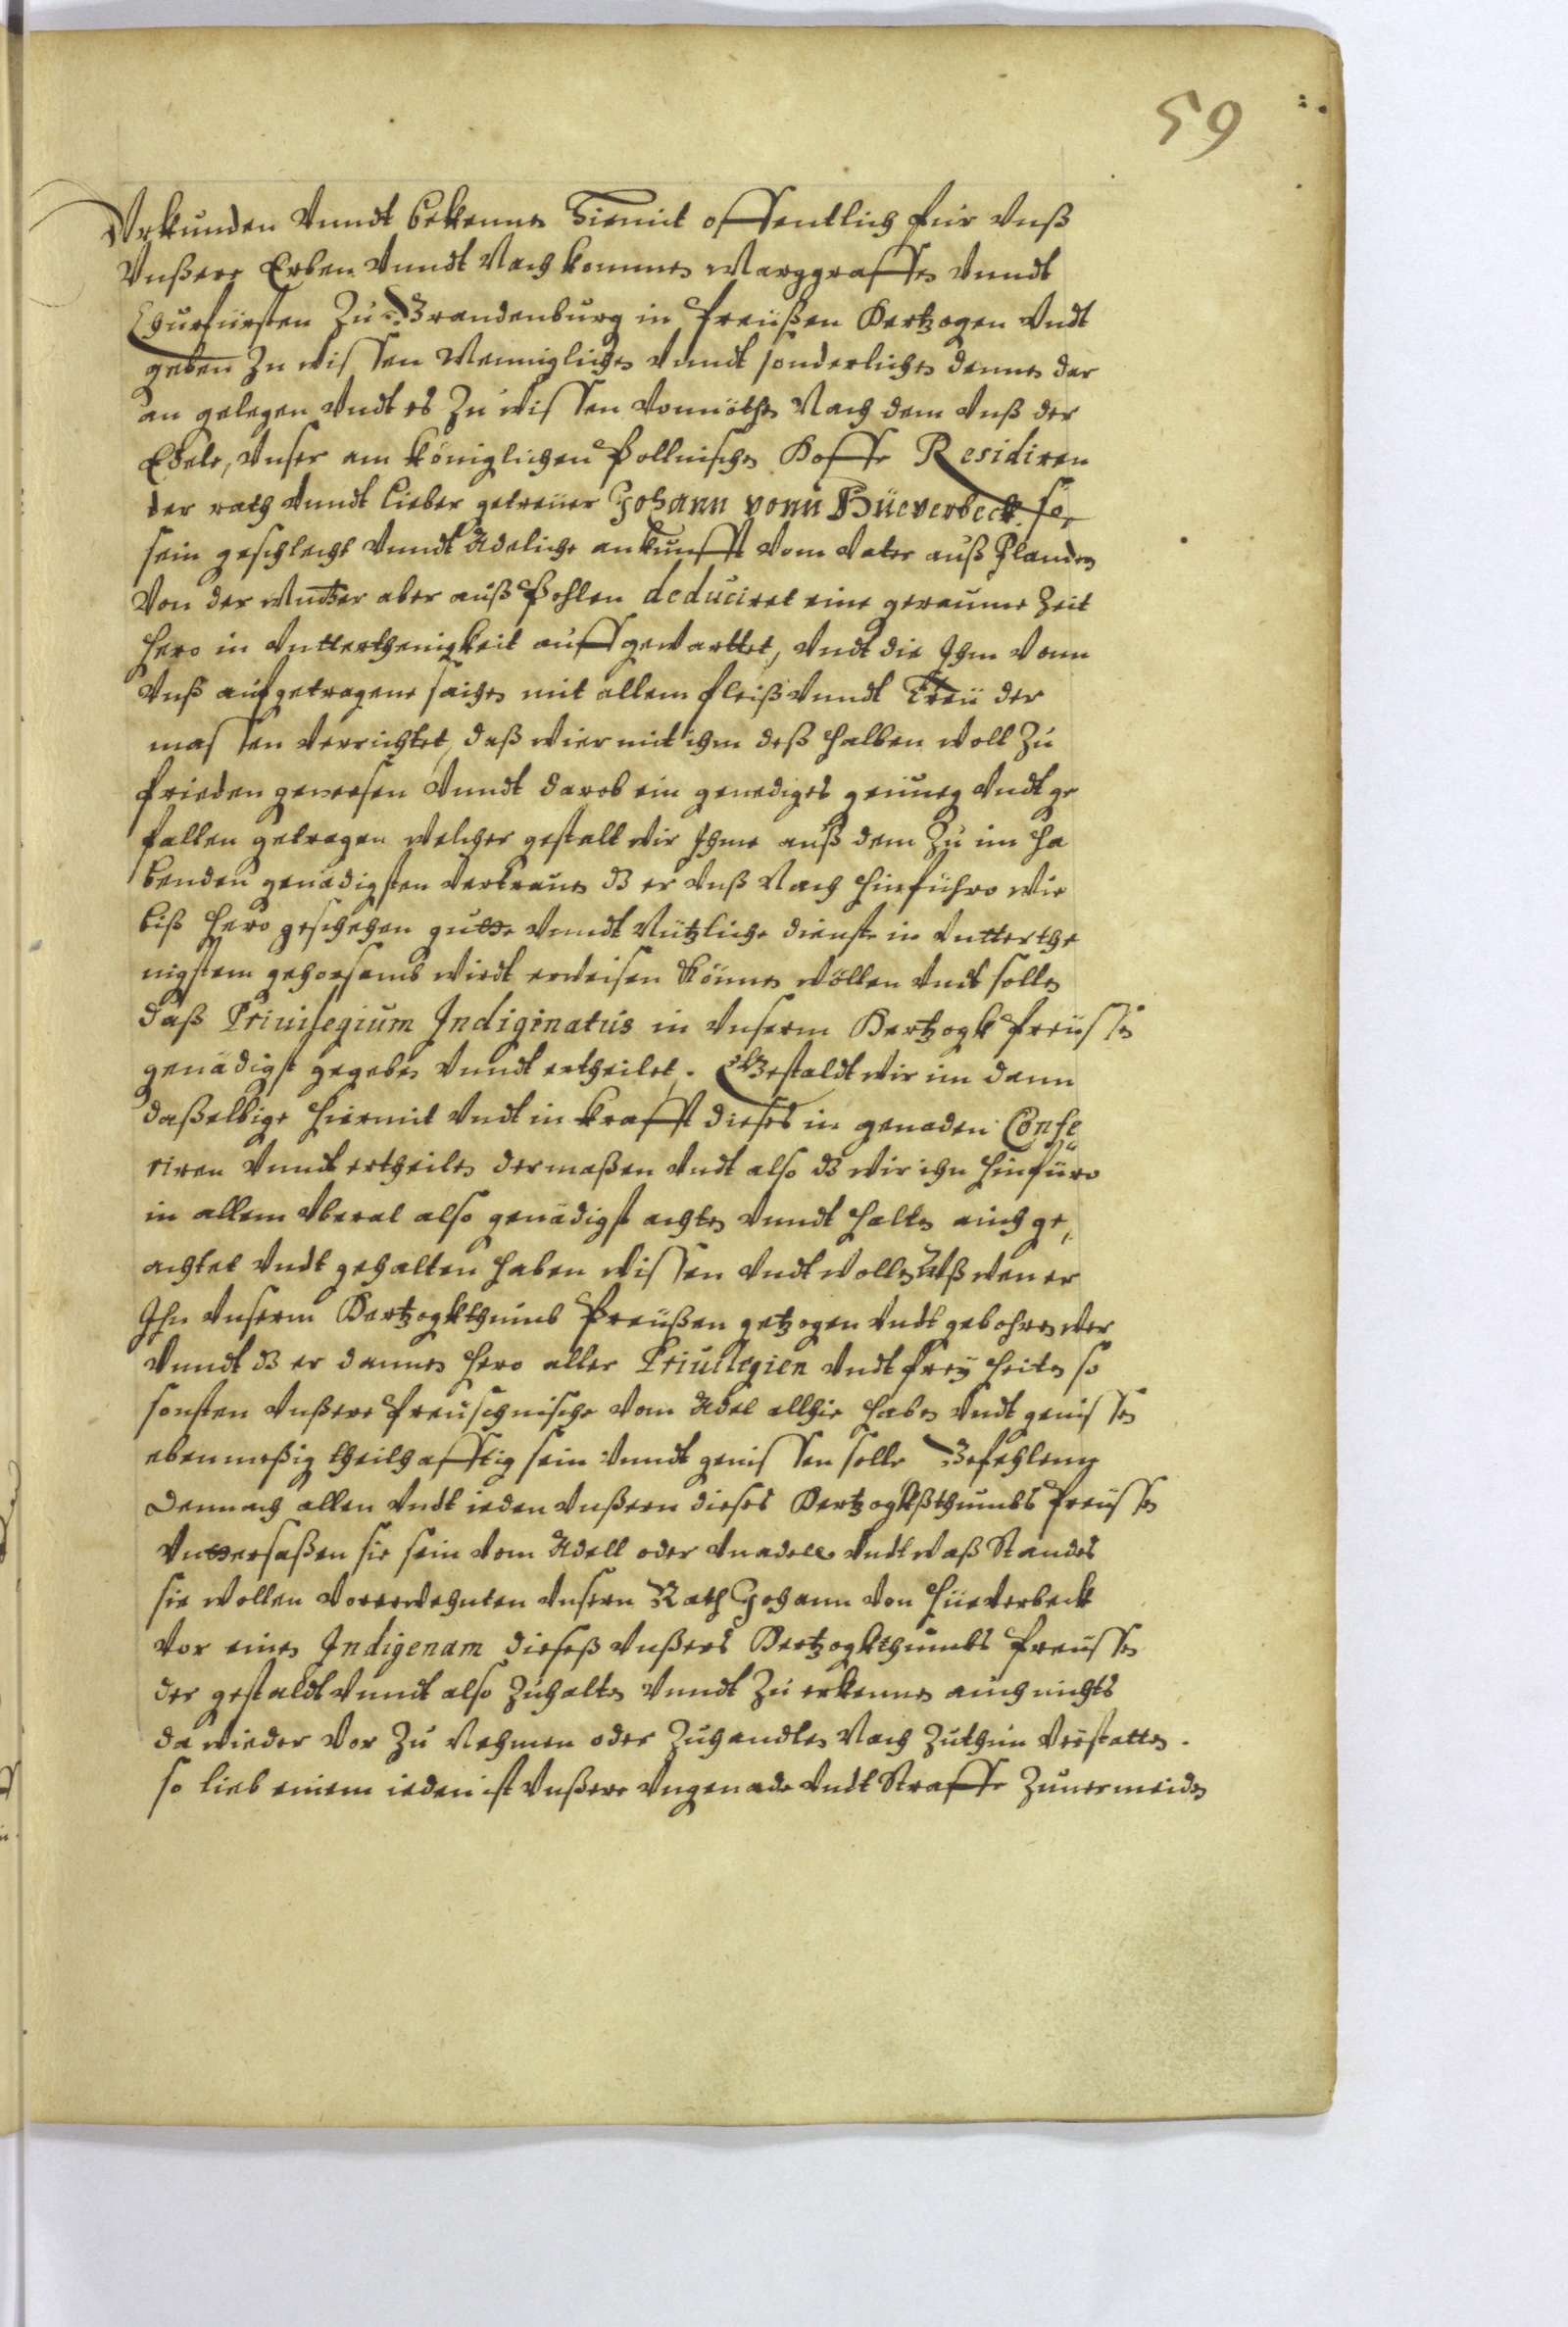 59
Vrkunden Vnndt bekennen Hiemit offentlich für Vnß
Vnßere Erben Vnndt Nachkommen Marggraffen Vnndt
Churfürsten Zu Brandenburg in Preüßen Hertzogen Vndt
geben Zu wissen Menniglichen Vnndt sonderlichen denen dar
an gelegen Vndt es Zu wissen Vonnöthen Nach dem Vnß der
Edele, Vnser am königlichen Pollnischen Hoffe Residiren
der rath Vnndt lieber getreüer Johann vonn Hüeverbeck so
sein geschlecht Vnndt Adeliche ankunfft Vom Vater auß Flandern
Von der Mutter aber auß Pohlen deduciret eine geraume Zeit
hero in Vntterthenigkeit auffgewarttet, Vndt die Ihm Vonn
Vnß aufgetragene sachen mit allem fleiß Vnndt Treü der
massen Verrichtet, daß wier mit ihm deß halben woll Zu
frieden gewesen Vnndt darob ein genediges genueg Vndt ge
fallen getragen welcher gestalt wir Ihme auß dem Zu im ha
benden genädigsten Vertrauen dz er Vnß Nach hinführo wie
biß hero geschehen gutte Vnndt Nützliche dienste in Vntterthe
nigstem gehorsamb wirdt erweisen können wöllen Vndt sollen
daß Priuilegium Indiginatus in Vnserm Hertzogk Preüssen
genädigst gegeben Vnndt ertheilet. Gestaldt wir im dann
daßelbige hiermit Vndt in krafft dieses in genaden Confe
riren Vnndt ertheilen dermaßen Vndt also dz wir ihn hinfüro
in allem Vberal also genädigst achten Vnndt halten auch ge,
achtet Vndt gehalten haben wissen Vndt wollen Alß wen er
Ihn Vnserm Hertzogkthumb Preüßen getzogen Vndt gebohren wer
Vnndt dz er dannen hero aller Priuilegien Vndt freÿ heiten so
sonsten Vnßere Preuschnische Vom Adel allhie haben Vndt genissen
ebenmeßig theilhafftig sein Vnndt genissen solle Befehlenn
Demnach allen Vndt ieden Vnßern dieses Hertzogkßthumbs Preüssen
Vnttersaßen sie sein Vom Adell oder Vnadell Vndt waß Standes
sie wollen Vorerwehnten Vnsern Rath Johann Von Hüeverbeck
Vor einen Indigenam dieseß Vnßers Hertzogkthumbs Preüssen
der gestaldt Vnndt also Zuhalten Vnndt Zu erkennen auch nichts
da wieder Vor Zu Nehmen oder Zuhandlen Nach Zuthun Verstatten.
so lieb einem ieden ist Vnßere Vngenade Vndt Straffe Zuuermeiden